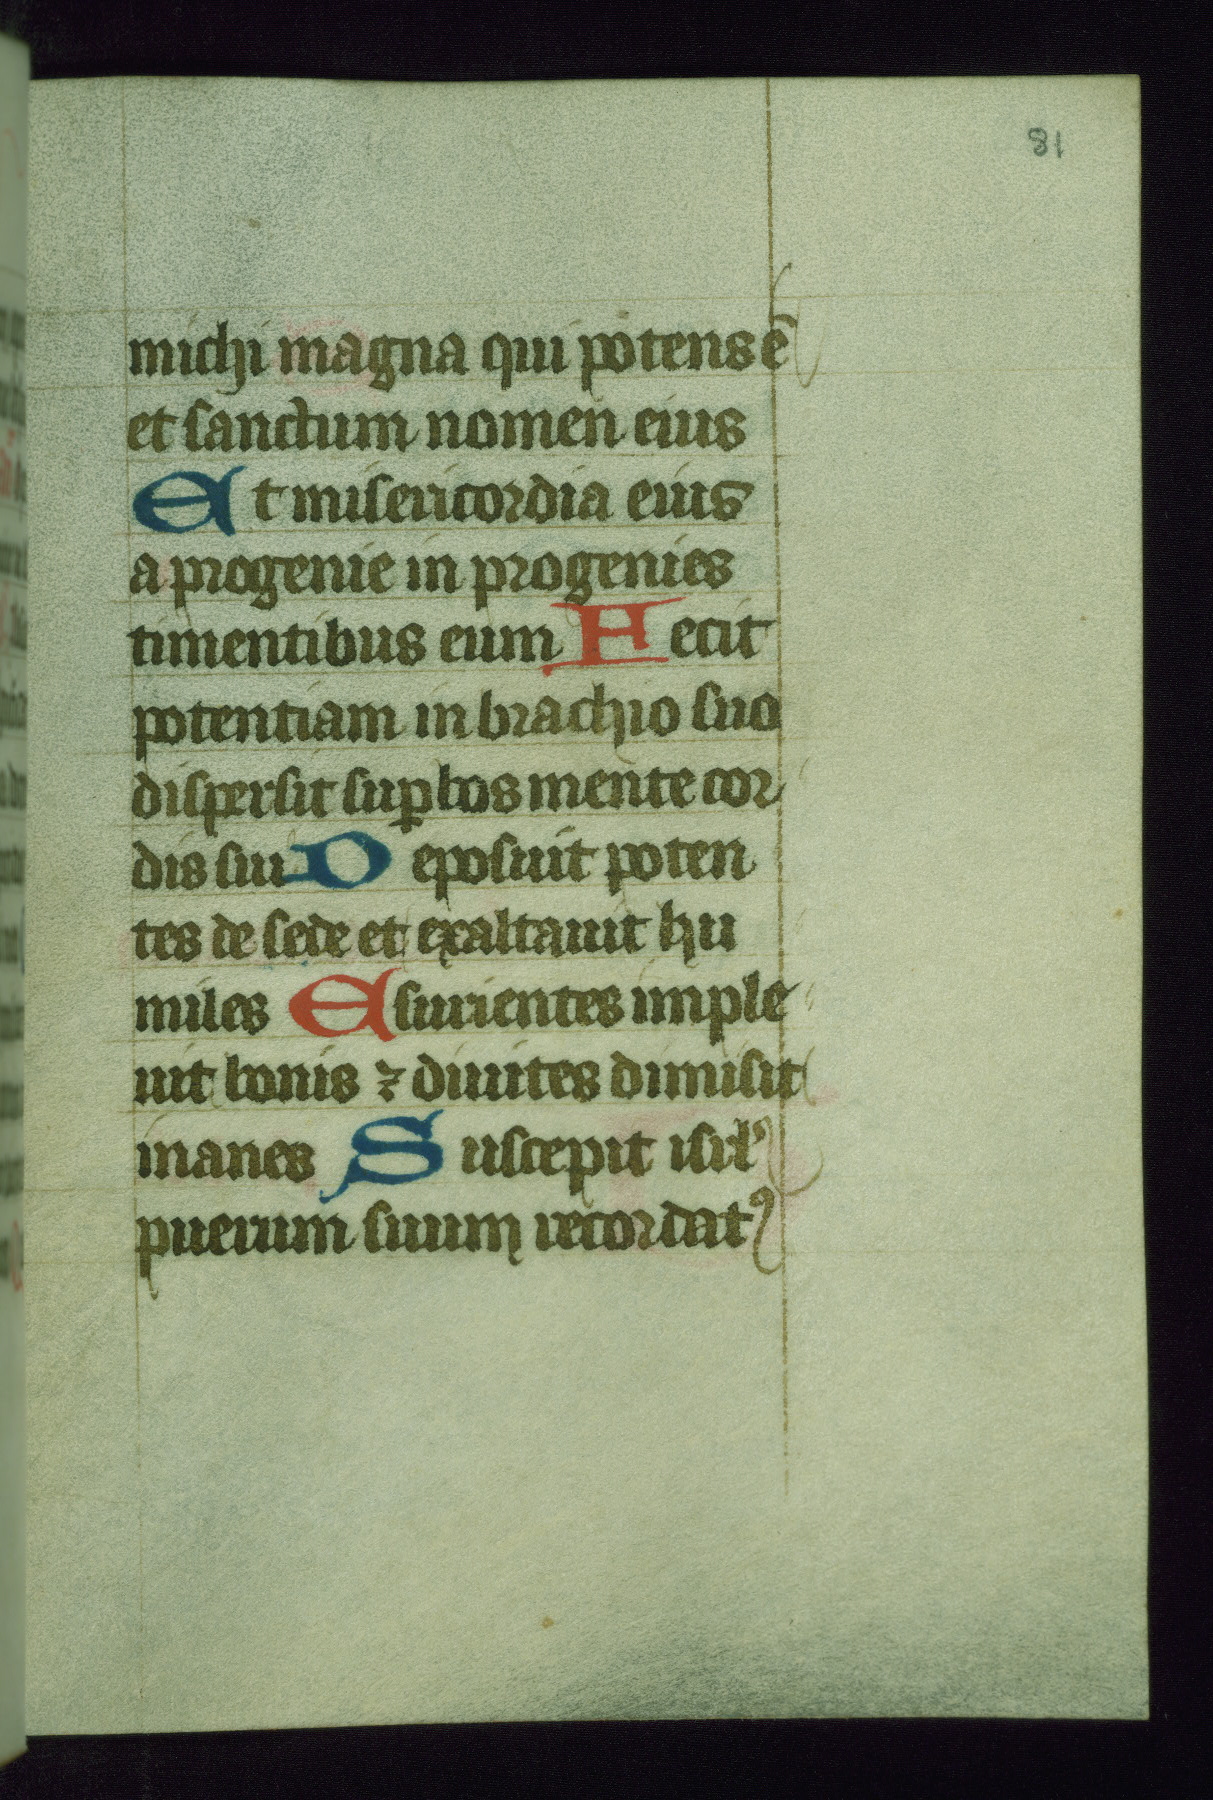 81
michi magna qui potens ē
et sanctum nomen eius
Et misericordia eius
a progenie in progenies
timentibus eum Fecit
potentiam in brachio suo
dispersit suꝑbos mente cor
dis sui Deposuit poten
tes de sede et exaltauit hu
miles Esurientes imple
uit bonis ⁊ diuites dimisit
inanes Suscepit isrl'
puerum suum recordatꝰ